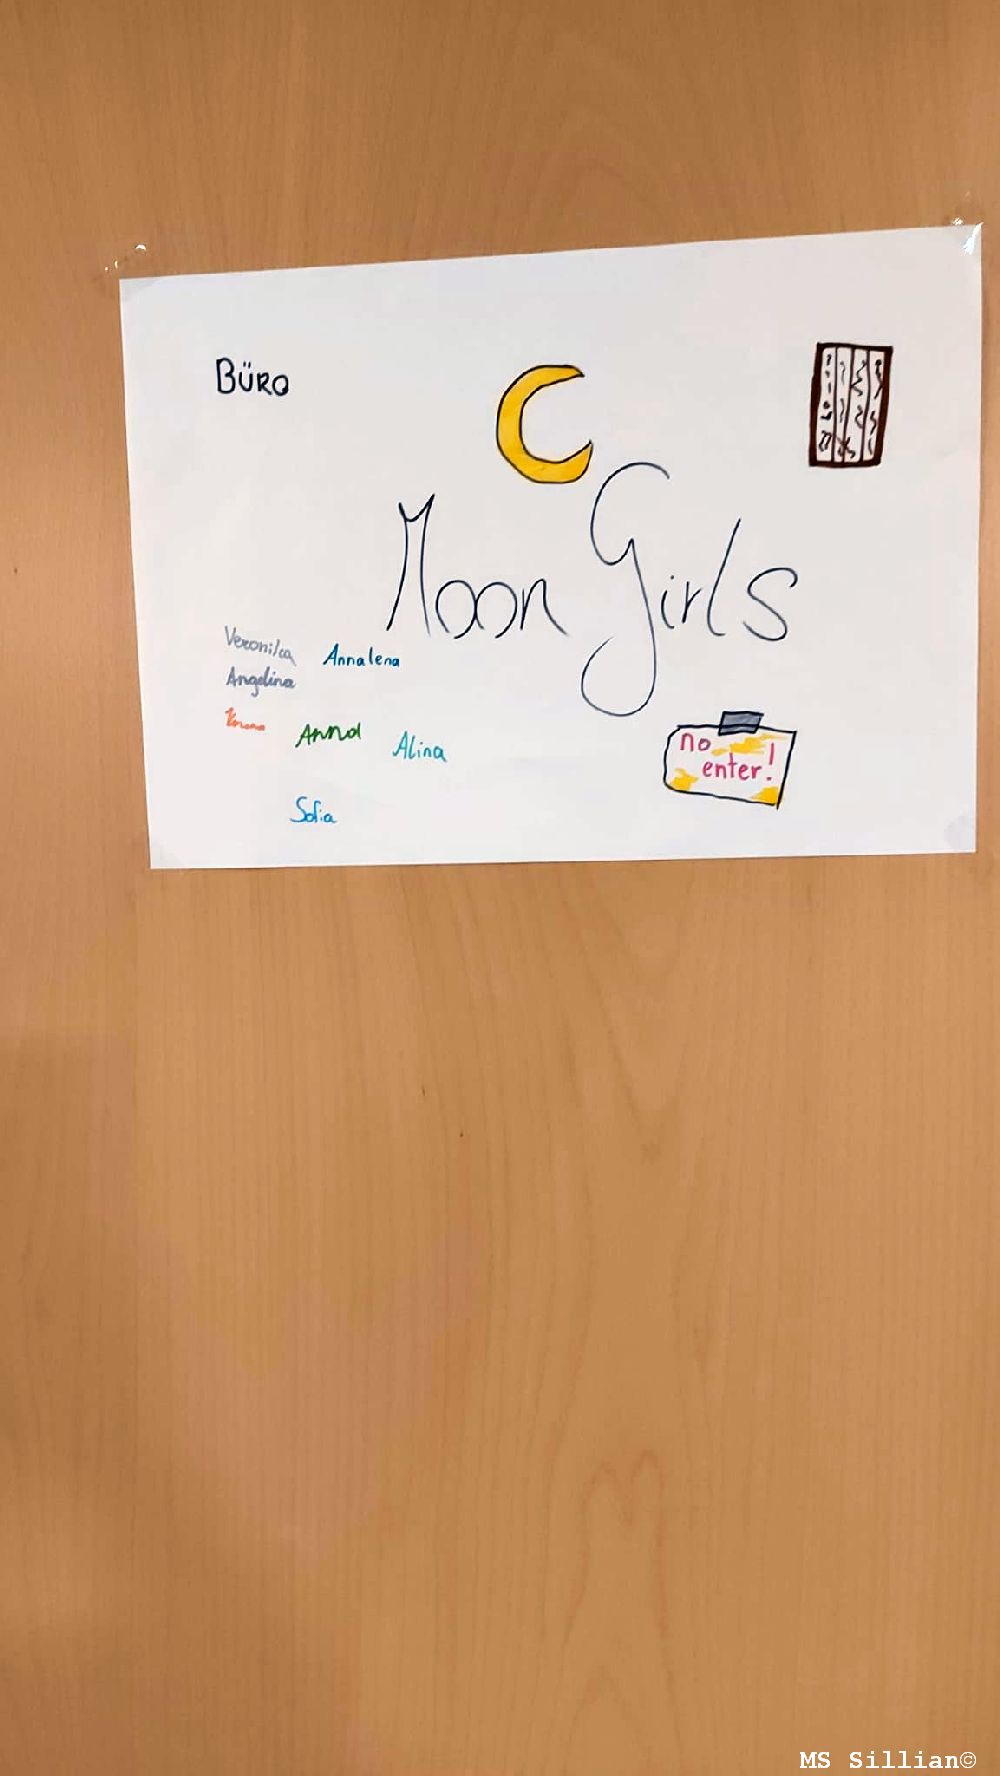 BÜRO
Moon Girls
Veronika
Annalena
Angelina
Anna
Alina
Sofia
no
enter!
MS Sillian©